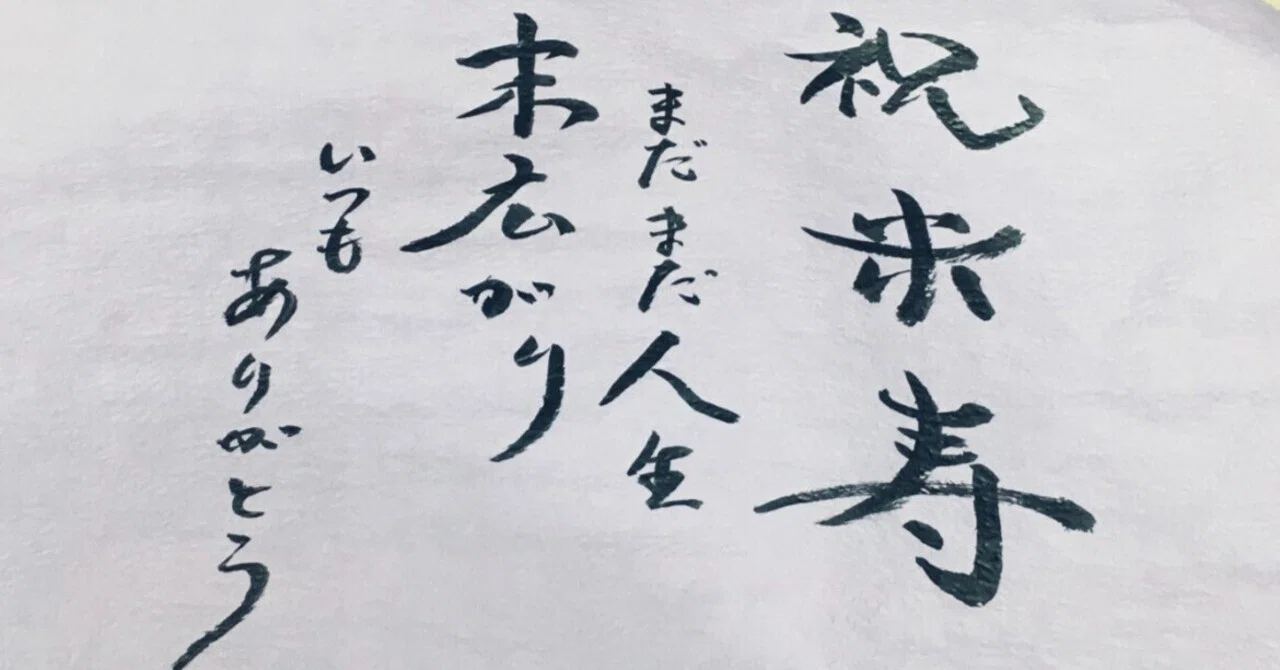 祝米寿
まだまだ人生
末広がり
いつも
ありがとう